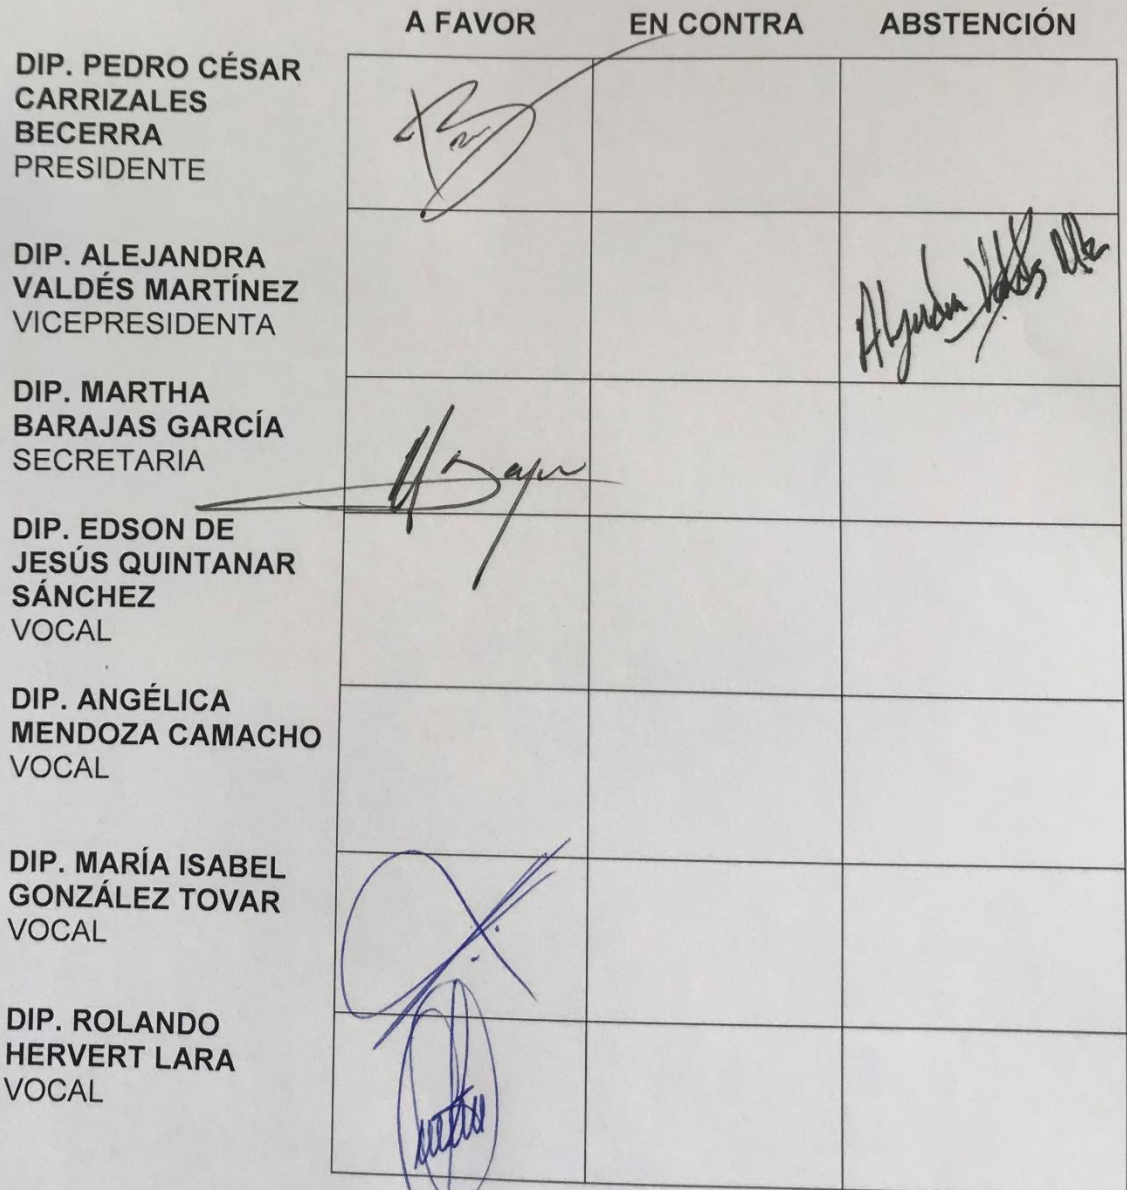 A FAVOR EN CONTRA ABSTENCIÓN
DIP. PEDRO CÉSAR
CARRIZALES
BECERRA
PRESIDENTE
DIP. ALEJANDRA
VALDÉS MARTÍNEZ
VICEPRESIDENTA
Alejandra Valdés Mtz
DIP. MARTHA
BARAJAS GARCÍA
SECRETARIA
DIP. EDSON DE
JESÚS QUINTANAR
SÁNCHEZ
VOCAL
DIP. ANGÉLICA
MENDOZA CAMACHO
VOCAL
DIP. MARÍA ISABEL
GONZÁLEZ TOVAR
VOCAL
DIP. ROLANDO
HERVERT LARA
VOCAL